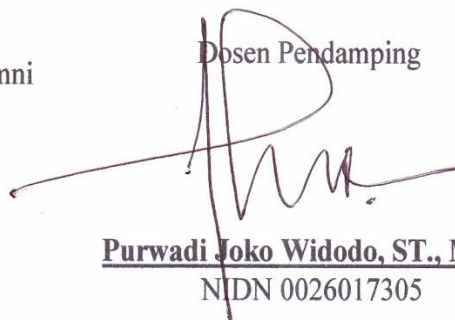 mni
Dosen Pendamping
Purwadi Joko Widodo, ST., M
NIDN 0026017305